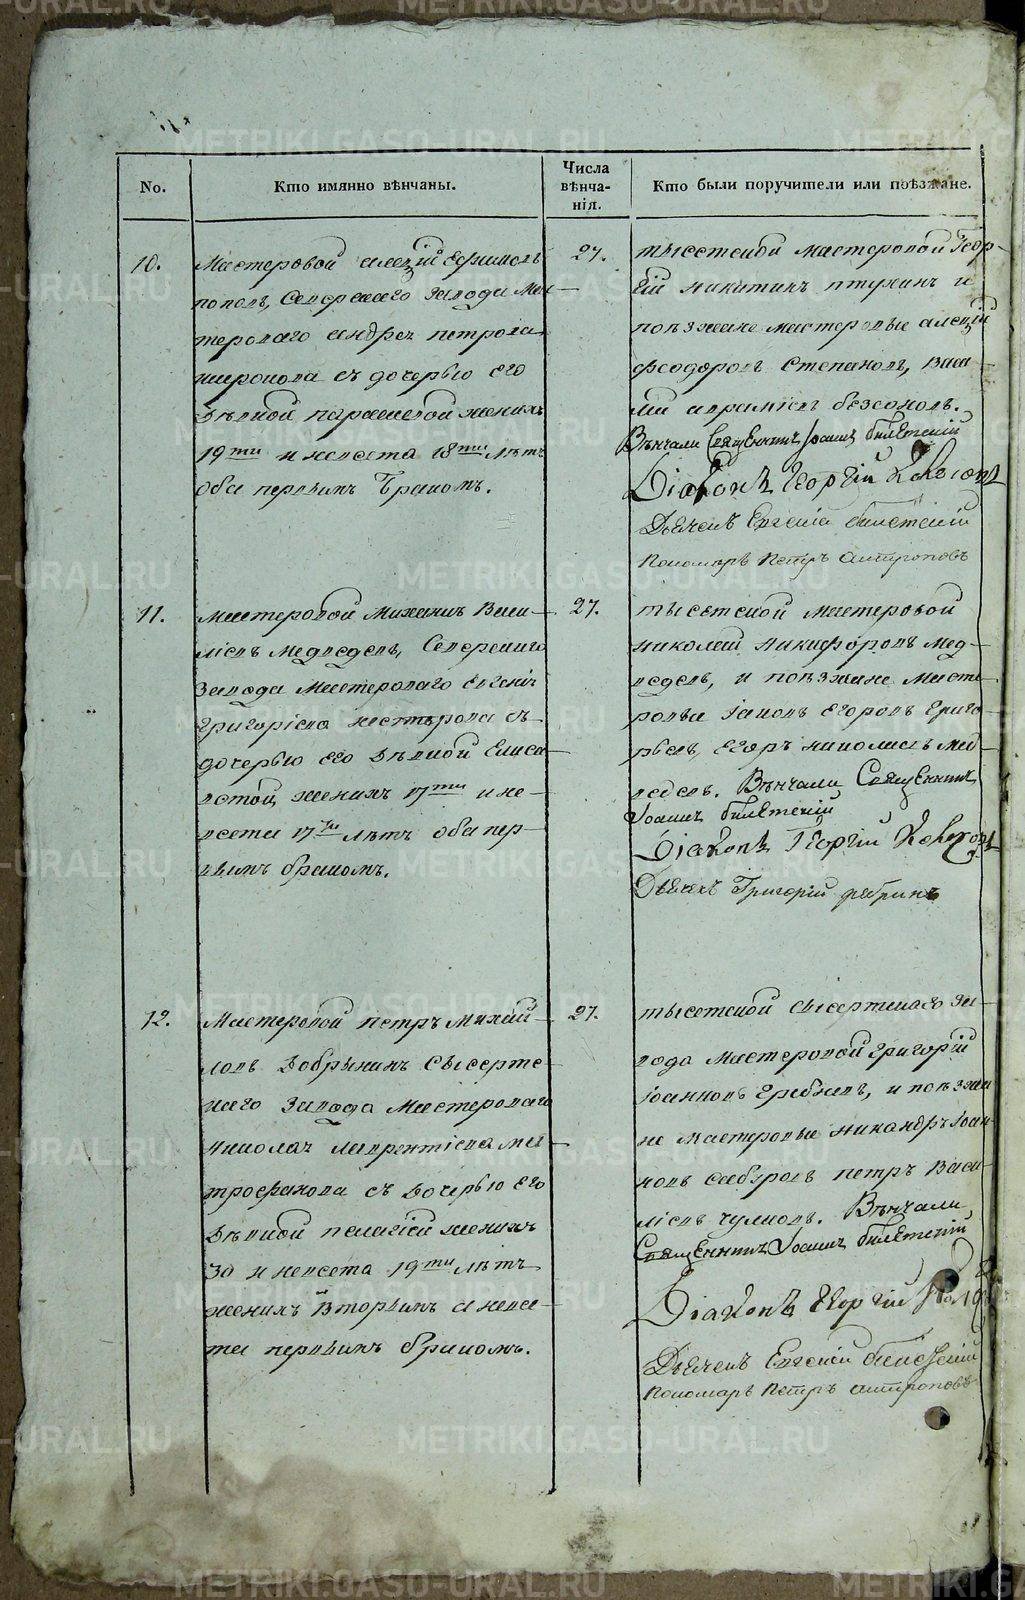 No.
Кто имянно вѣнчаны.
Числа
вѣнча-
нія.
Кто были поручители или поѣзжане.
10.
Мастеровой алеѯій Ефимовъ
поповъ, Северскаго завода Мас-
тероваго андрея петрова
широкова съ дочерью его
Дѣвкой параскевой жених
19ти и невеста 18ти лѣтъ
оба первымъ бракомъ.
27.
тысетской мастеровой Геор-
гій никитинъ птухинъ и
поѣзжане мастеровые алеѯій
феодоровъ Степановъ, Васи-
лій аврамиевъ безсоновъ.
Вѣнчали Священникъ Іоаннъ
Diakonъ Георгій
Дьячекъ Евгеній
Пономарь Петръ Антроповъ
11.
Мастеровой Михаилъ Васи-
ліевъ Медведевъ, Северскаго
завода Мастероваго Евгенія
григоріева нестерова съ
дочерью его Дѣвкой Елиса-
ветой, женихъ 17ти и не-
веста 17ти лѣтъ оба пер-
вымъ бракомъ.
27.
тысетской мастеровой
николай никифоровъ мед-
ведевъ, и поѣзжане Масте-
ровые Іаковъ Егоровъ Григо-
рьевъ, Егоръ николаевъ Мед-
ведевъ. Вѣнчали Священникъ
Іоаннъ
Diakonъ Георгій
Дьячекъ Григорій
12.
Мастеровой петръ Михай-
ловъ Добрынинъ Сысертс-
каго завода Мастероваго
николая лаврентіева ми-
трофанова съ Дочерью Его
Дѣвкой пелагіей женихъ
30 и невеста 19ти лѣтъ
женихъ вторымъ а невес-
та первымъ бракомъ.
27.
тысетской сысертскаго за-
вода мастеровой григорій
іоанновъ гребневъ, и поѣзжа-
не мастеровые никандръ іоан-
новъ петръ Васи-
ліевъ чулковъ. Вѣнчали
Священникъ Іоаннъ
Diakonъ Георгій
Дьячекъ Евгеній
Пономарь Петръ Антроповъ
METRIKI.GASO-URAL.RU